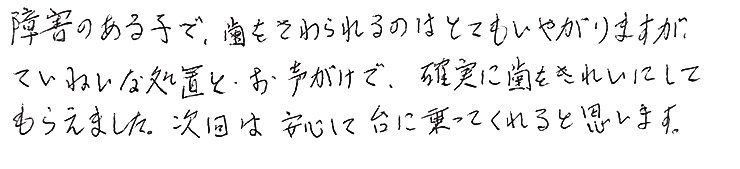 障害のある子で、歯をさわられるのはとてもいやがりますが、
ていねいな処置と、お声がけで、確実に歯をきれいにして
もらえました。次回は安心して台に乗ってくれると思います。